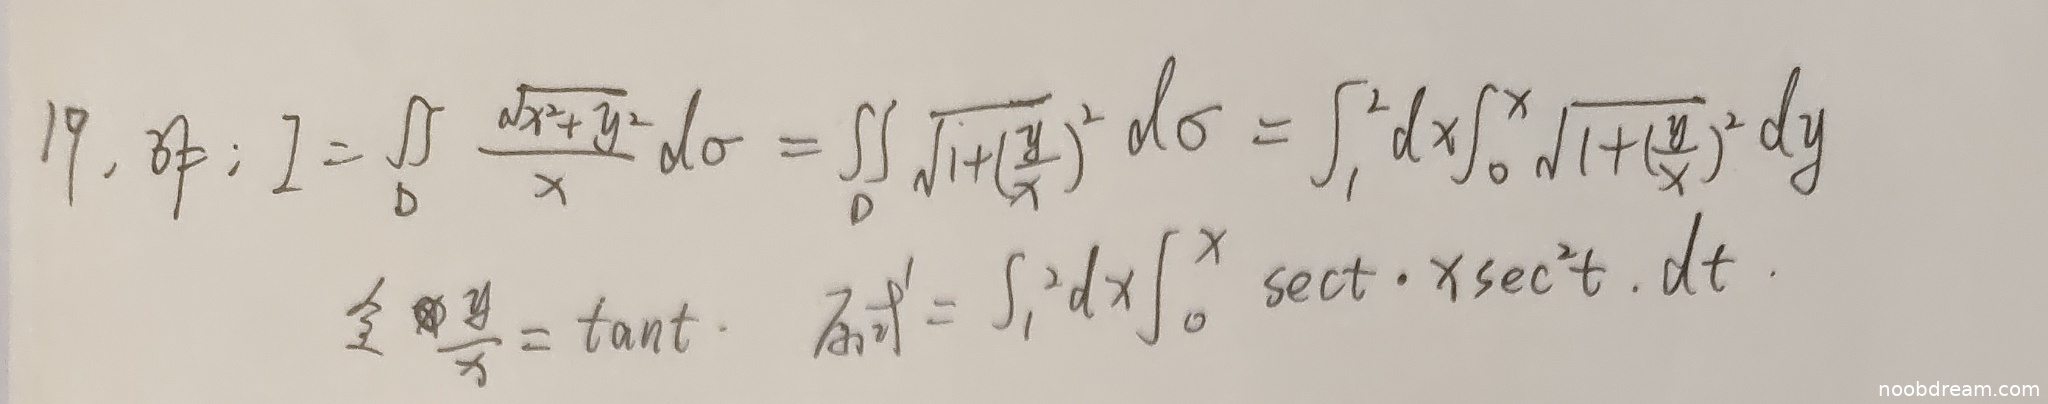 19. 解: I = ∬_D √(x²+y²)/x dσ = ∬_D √(1+(y/x)²) dσ = ∫₁² dx ∫₀ˣ √(1+(y/x)²) dy
令 y/x = tant. 原式 = ∫₁² dx ∫₀ˣ sect · x sec²t . dt .
noobdream.com